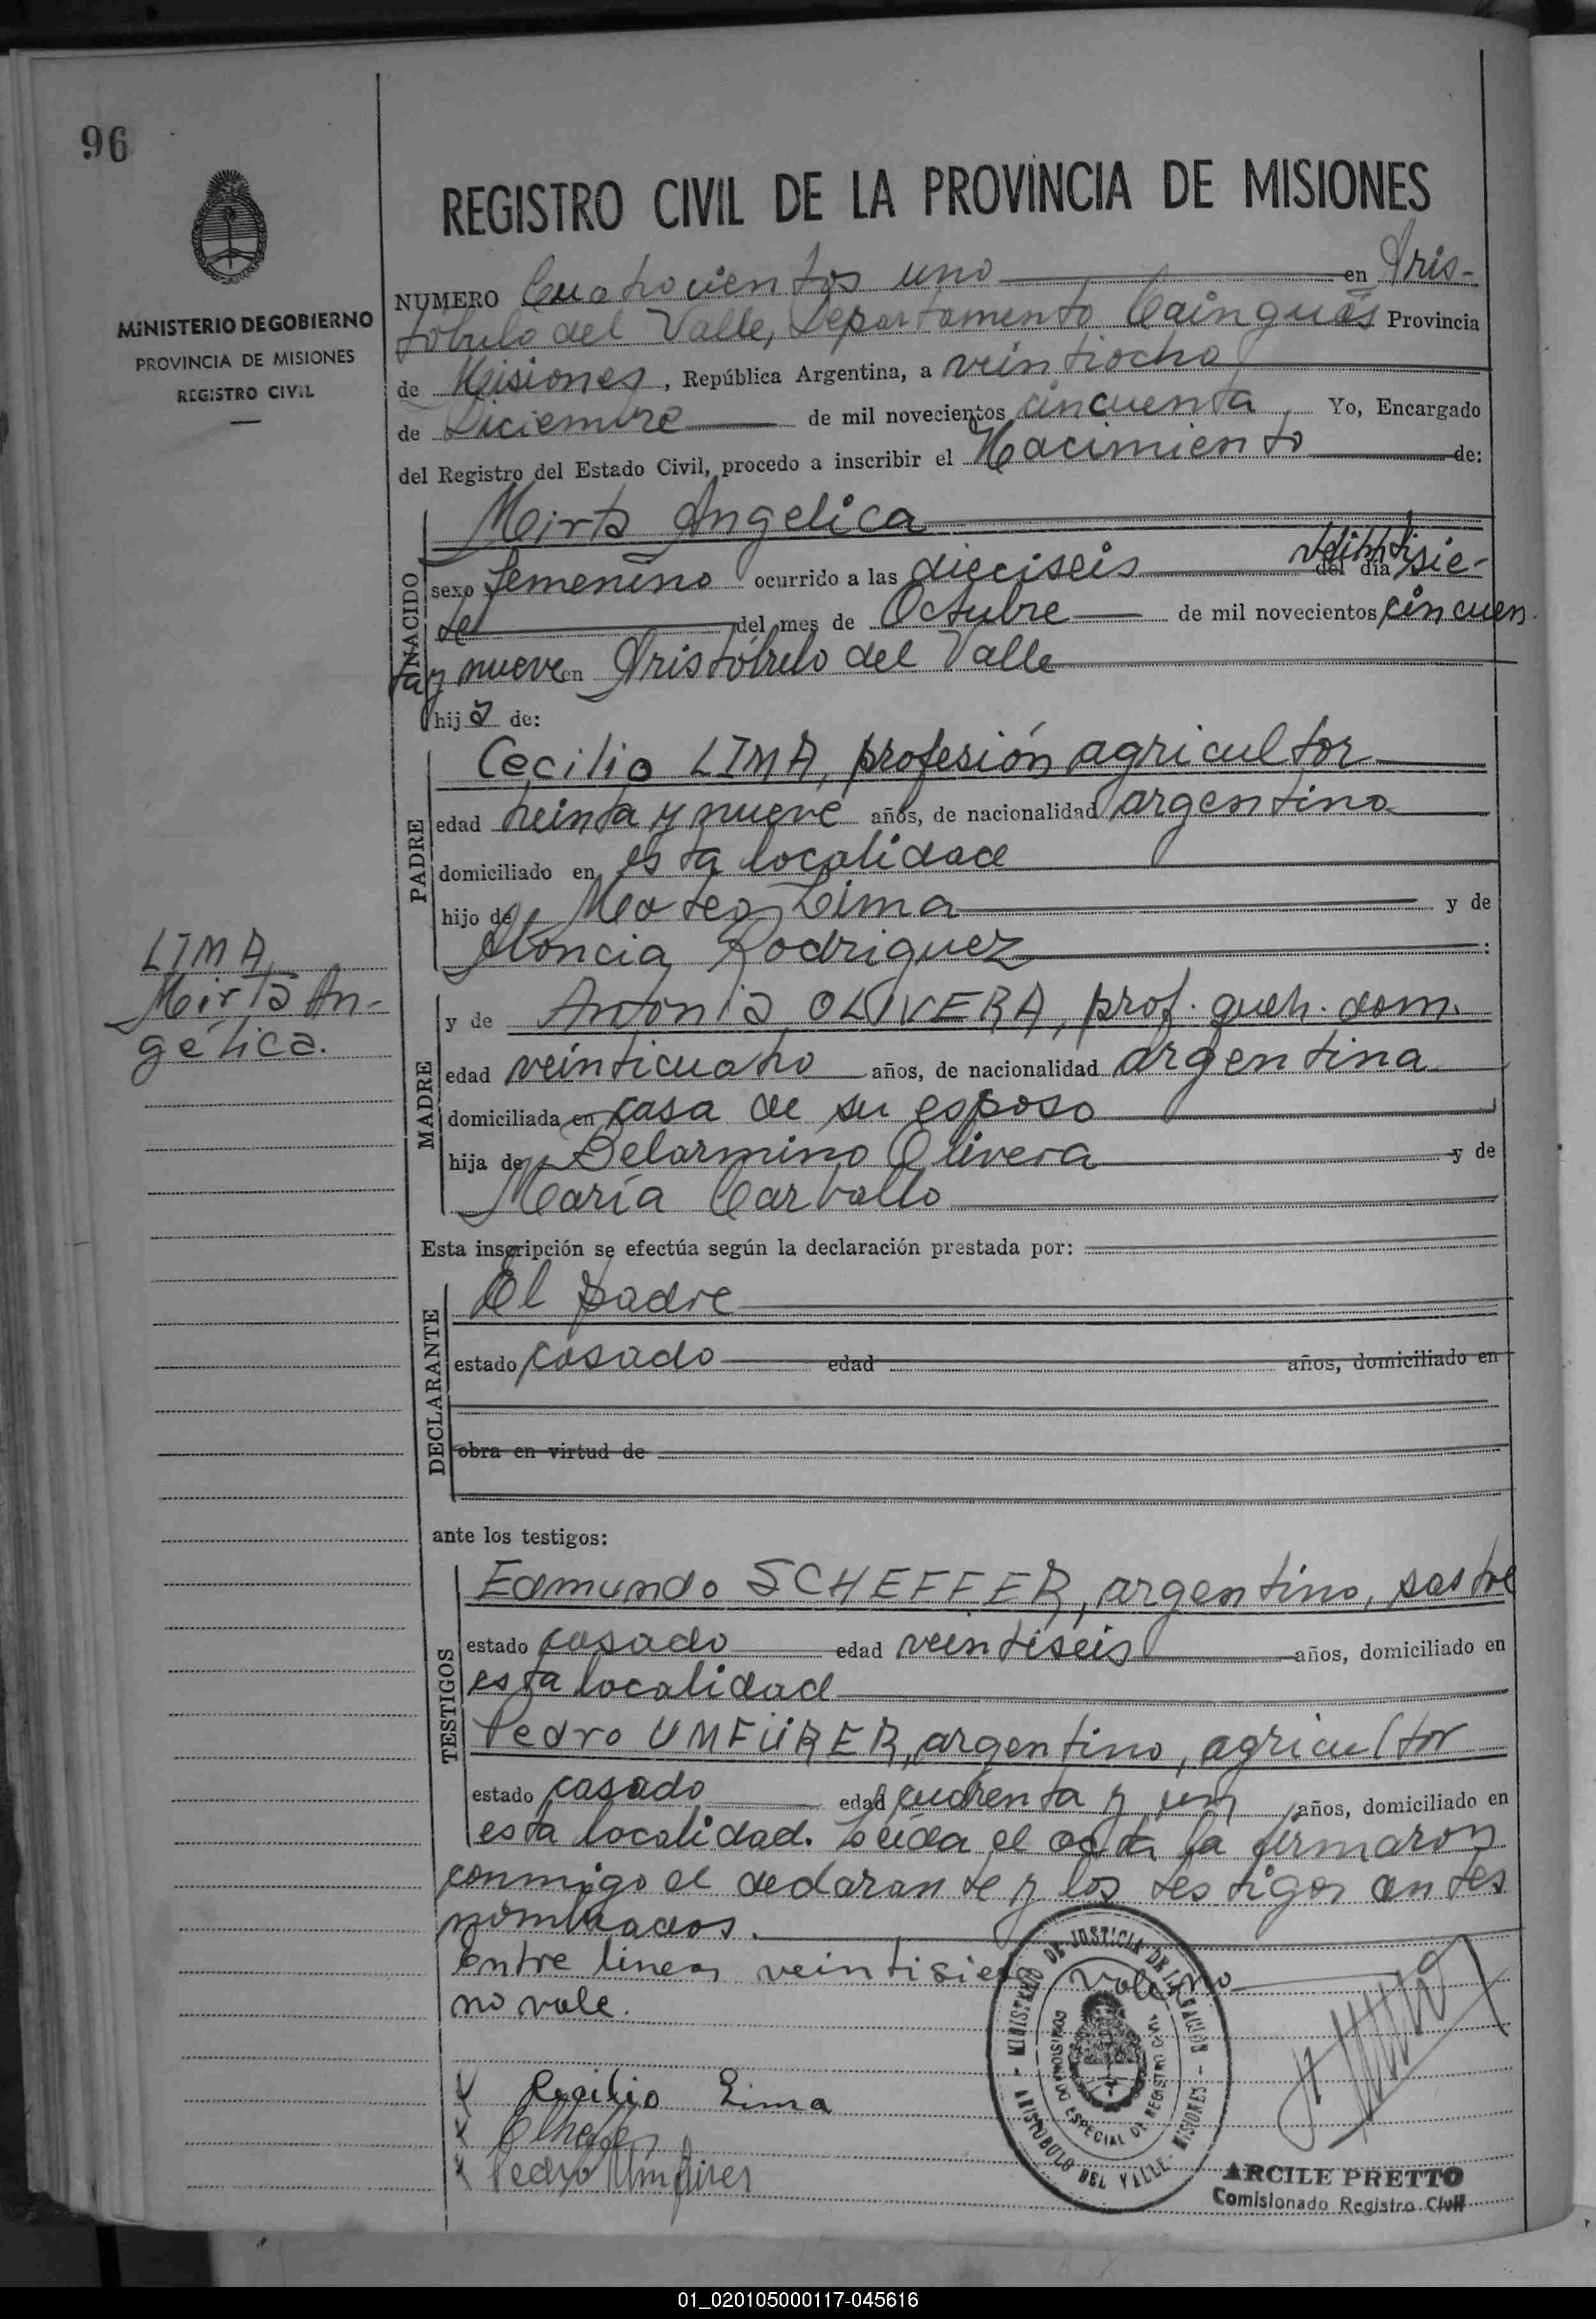 96
REGISTRO CIVIL DE LA PROVINCIA DE MISIONES
MINISTERIO DE GOBIERNO
PROVINCIA DE MISIONES
REGISTRO CIVIL
NUMERO Cuatrocientos uno en Aris-
tóbulo del Valle, Departamento Cainguás Provincia
de Misiones, República Argentina, a veintiocho
de Diciembre de mil novecientos cincuenta Yo, Encargado
del Registro del Estado Civil, procedo a inscribir el Nacimiento de:
NACIDO
Mirta Angelica
sexo femenino ocurrido a las dieciseis del día veintisie-
te del mes de Octubre de mil novecientos cincuen-
ta y nueve en Aristóbulo del Valle
hija de:
PADRE
Cecilio LIMA, profesión agricultor
edad treinta y nueve años, de nacionalidad argentina
domiciliado en esta localidad
hijo de Mateo Lima y de
Rodriguez:
LIMA
Mirta An-
gélica.
MADRE
y de Antonia OLIVERA, prof. queh. dom.
edad veinticuatro años, de nacionalidad argentina
domiciliada en casa de su esposo
hija de Belarmino Olivera y de
María Carballo
Esta inscripción se efectúa según la declaración prestada por:
DECLARANTE
El padre
estado casado edad años, domiciliado en
obra en virtud de
ante los testigos:
TESTIGOS
Edmundo SCHEFFER, argentino, sastre
estado casado edad veintiseis años, domiciliado en
esta localidad
Pedro UMFÜRER, argentino, agricultor
estado casado edad cuarenta y un años, domiciliado en
esta localidad. Leída el acta la firmaron
conmigo el declarante y los testigos antes
nombrados.
entre lineas veintisiete vale no
no vale.
Cecilio Lima
Pedro Umfürer
MINISTERIO DE JUSTICIA DE LA NACION
COMISIONADO ESPECIAL DE REGISTRO CIVIL
ARISTOBULO DEL VALLE - MISIONES
ARCILE PRETTO
Comisionado Registro Civil
01_020105000117-045616